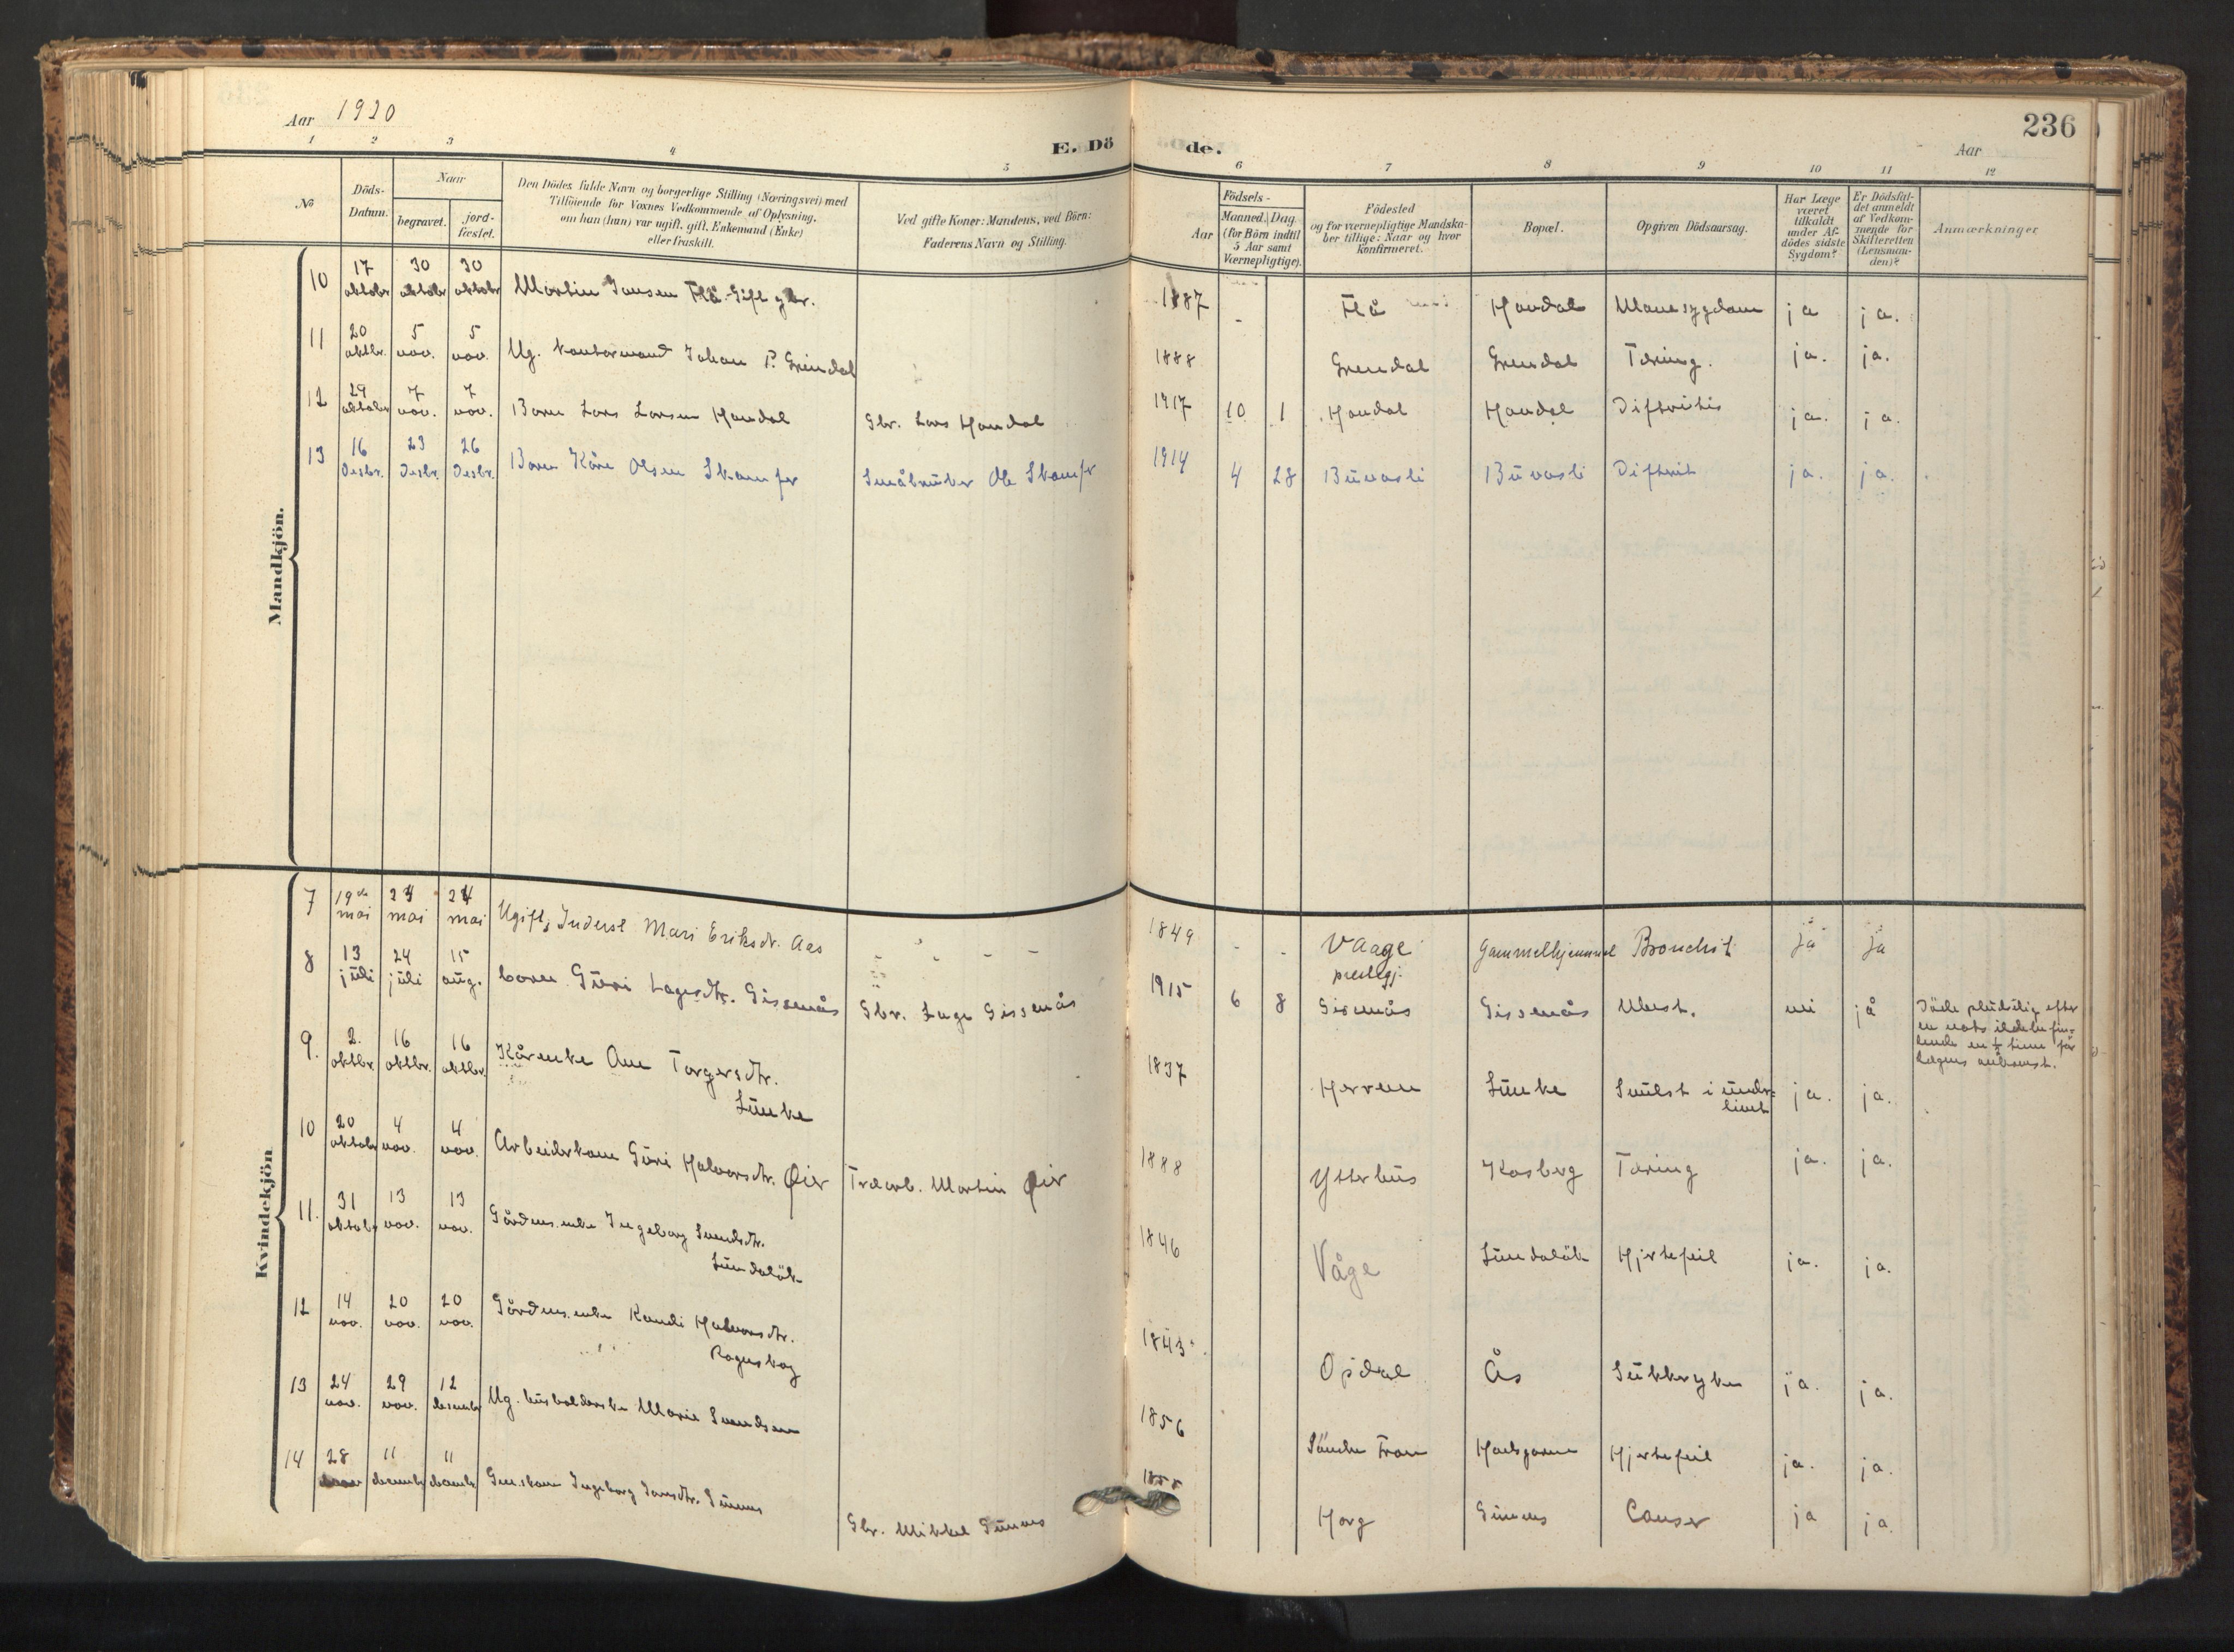 Aar 1920
E. Döde.
236
Aar
1 2 3 4 5 6 7 8 9 10 11 12
No
Döds-
Datum.
Naar
begravet.
jord-
fæstet.
Den Dödes fulde Navn og borgerlige Stilling (Næringsvei) med
Tilföiende for Voxnes Vedkommende af Oplysning,
om han (hun) var ugift, gift, Enkemand (Enke)
eller fraskilt.
Ved gifte Koner: Mandens, ved Börn:
Faderens Navn og Stilling.
Födsels-
Aar
Maaned. Dag
(for Börn indtil
5 Aar samt
Værnepligtige).
Födested
og for værnepligtige Mandska-
ber tillige: Naar og hvor
konfirmeret.
Bopæl.
Opgiven Dödsaarsag.
Har Læge
været
tilkaldt
under Af-
dödes sidste
Sygdom?
Er Dödsfal-
det anmeldt
af Vedkom-
mende for
Skifteretten
(Lensman-
den)?
Anmærkninger
Mandkjön.
10 17 oktober 30 oktober 30 oktober Martin Jansen Flå Gift gbr. 1887 - Flå Haudal Mavesygdom ja ja.
11 20 oktbr. 5 nov. 5 nov. Ug. kontormand Johan P. Grindal 1888 Grendal Grendal Tæring. ja. ja.
12 29 oktober 7 nov. 7 nov. Barn Lars Larsen Haudal Gbr. Lars Haudal 1917 10 1 Haudal Haudal Difteritis ja. ja.
13 16 Desbr. 23 Desbr. 26 Desbr. Barn Kåre Olsen Skamfer Småbruker Ole Skamfr 1914 4 28 Buvasli Buvasli Difterit ja. ja.
Kvindekjön
7 19de mai 24 mai 24 mai Ugift, Inderst Mari Eriksdr. Aas - - - - 1849 - - Vaage Gammelhjemmet Bronchit ja ja
prestegj.
8 13 juli 24 juli 15 aug. barn Guri Lagesdtr. Gissenås Gbr. Lage Gissenås 1915 6 8 Gissenås Gissenås Ubest. nei ja Döde pludselig efter
en nats ildebefin-
dende en ½ time før
lægens ankomst.
9. 2. oktbr. 16 oktbr. 16 oktbr. Kårenke Ane Torgersdtr. 1837 Herrem Lunke Svulst i under- ja. ja.
Lunke livet
10 20 oktober 4 nov. 4 nov. Arbeiderkone Guri Halvorsdtr. Øier Træarb. Martin Øier 1888 Ytterhus Kosberg Tæring ja. ja.
11. 31 oktober 13 nov. 13 nov. Gårdms. enke Ingeborg Svendsdtr. 1846 Våge Sundalök Hjertefeil ja. ja.
Sundalök
12 14 nov. 20 nov. 20 nov. Gårdms. enke Randi Halvorsdtr. 1843 Opdal Ås Sukkersyke ja. ja.
13 24 nov. 29 nov. 12 desember Ug. husholderske Marie Svendsen 1856 Söndre Fron Hadsgarm Hjertefeil ja. ja.
14 28 11 desember 11 desember Gmskone Ingeborg Jonsdtr. Sunnes Gbr. Mikkel Sunnes 1855 Horg Sunnes Cancer ja ja.